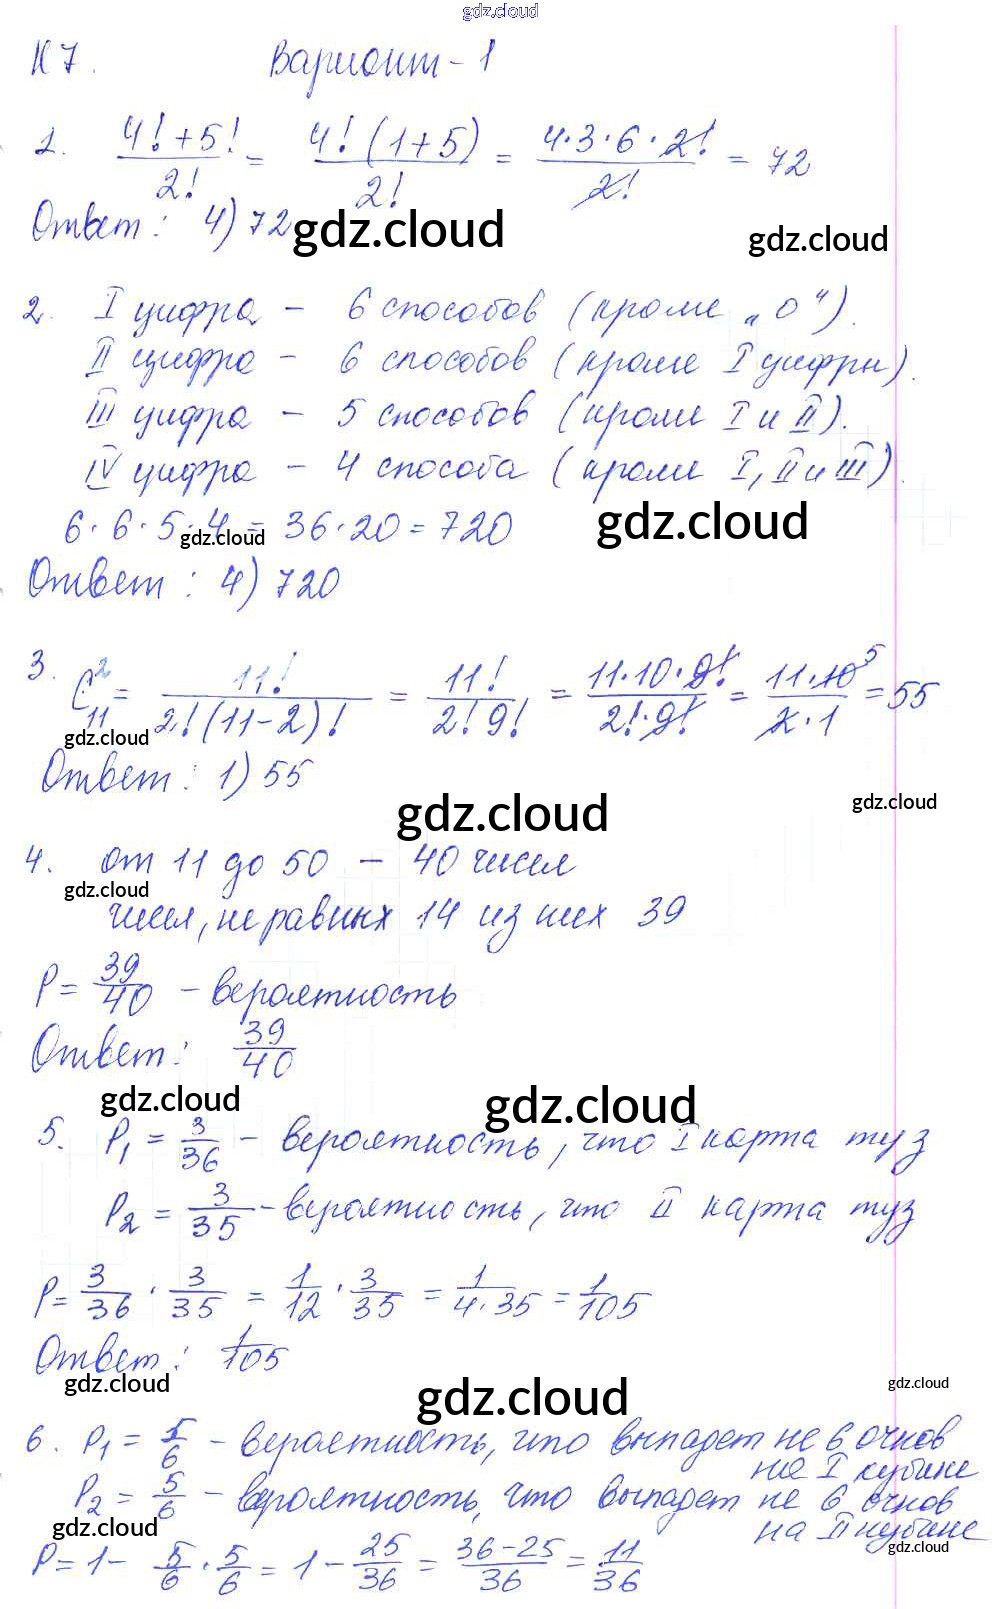 gdz.cloud
К 7. Вариант - 1
1. (4! + 5!)/2! = (4! (1+5))/2! = (4·3·6·2!)/2! = 72
Ответ: 4) 72
gdz.cloud
gdz.cloud
2. I цифра - 6 способов (кроме „0").
II цифра - 6 способов (кроме I цифры).
III цифра - 5 способов (кроме I и II).
IV цифра - 4 способа (кроме I, II и III).
6·6·5·4 = 36·20 = 720
gdz.cloud
gdz.cloud
Ответ: 4) 720
3. C²₁₁ = 11!/(2!(11-2)!) = 11!/(2! 9!) = (11·10·9!)/(2!·9!) = (11·10 5)/(2·1) = 55
gdz.cloud
Ответ: 1) 55
gdz.cloud
gdz.cloud
4. от 11 до 50 - 40 чисел
gdz.cloud
чисел, не равных 14 из них 39
P = 39/40 - вероятность
Ответ: 39/40
gdz.cloud
gdz.cloud
5. P₁ = 3/36 - вероятность, что I карта туз
P₂ = 3/35 - вероятность, что II карта туз
P = 3/36 · 3/35 = 1/12 · 3/35 = 1/(4·35) = 1/105
Ответ: 1/105
gdz.cloud
gdz.cloud
gdz.cloud
6. P₁ = 5/6 - вероятность, что выпадет не 6 очков
на I кубике
P₂ = 5/6 - вероятность, что выпадет не 6 очков
на II кубике
gdz.cloud
gdz.cloud
P = 1 - 5/6 · 5/6 = 1 - 25/36 = (36-25)/36 = 11/36